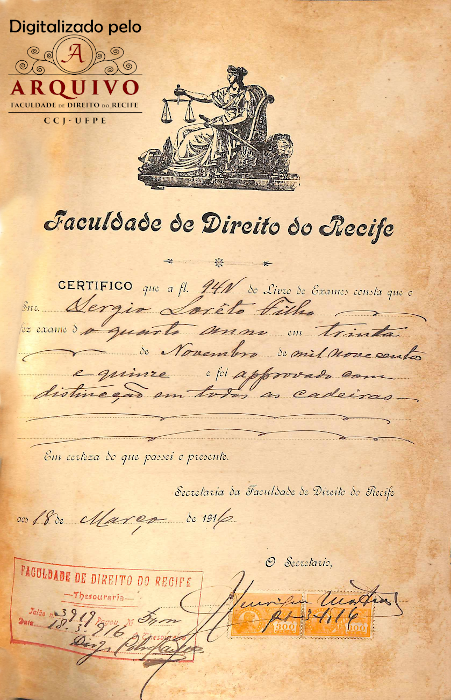 Digitalizado pelo
A
ARQUIVO
FACULDADE DE DIREITO DO RECIFE
CCJ-UFPE
Faculdade de Direito do Recife
CERTIFICO que a fl. 94V do Livro de Exames consta que o
Snr. Sergio Lorêto Filho
fez exame do quarto anno em trinta
de Novembro de mil nove centos
e quinze e foi approvado com
distincção em todas as cadeiras
Em certeza do que passei o presente.
Secretaria da Faculdade de Direito do Recife
aos 18 de Março de 1916
O Secretario,
FACULDADE DE DIREITO DO RECIFE
Thesouraria
Data 18-3-916
Thesoureiro